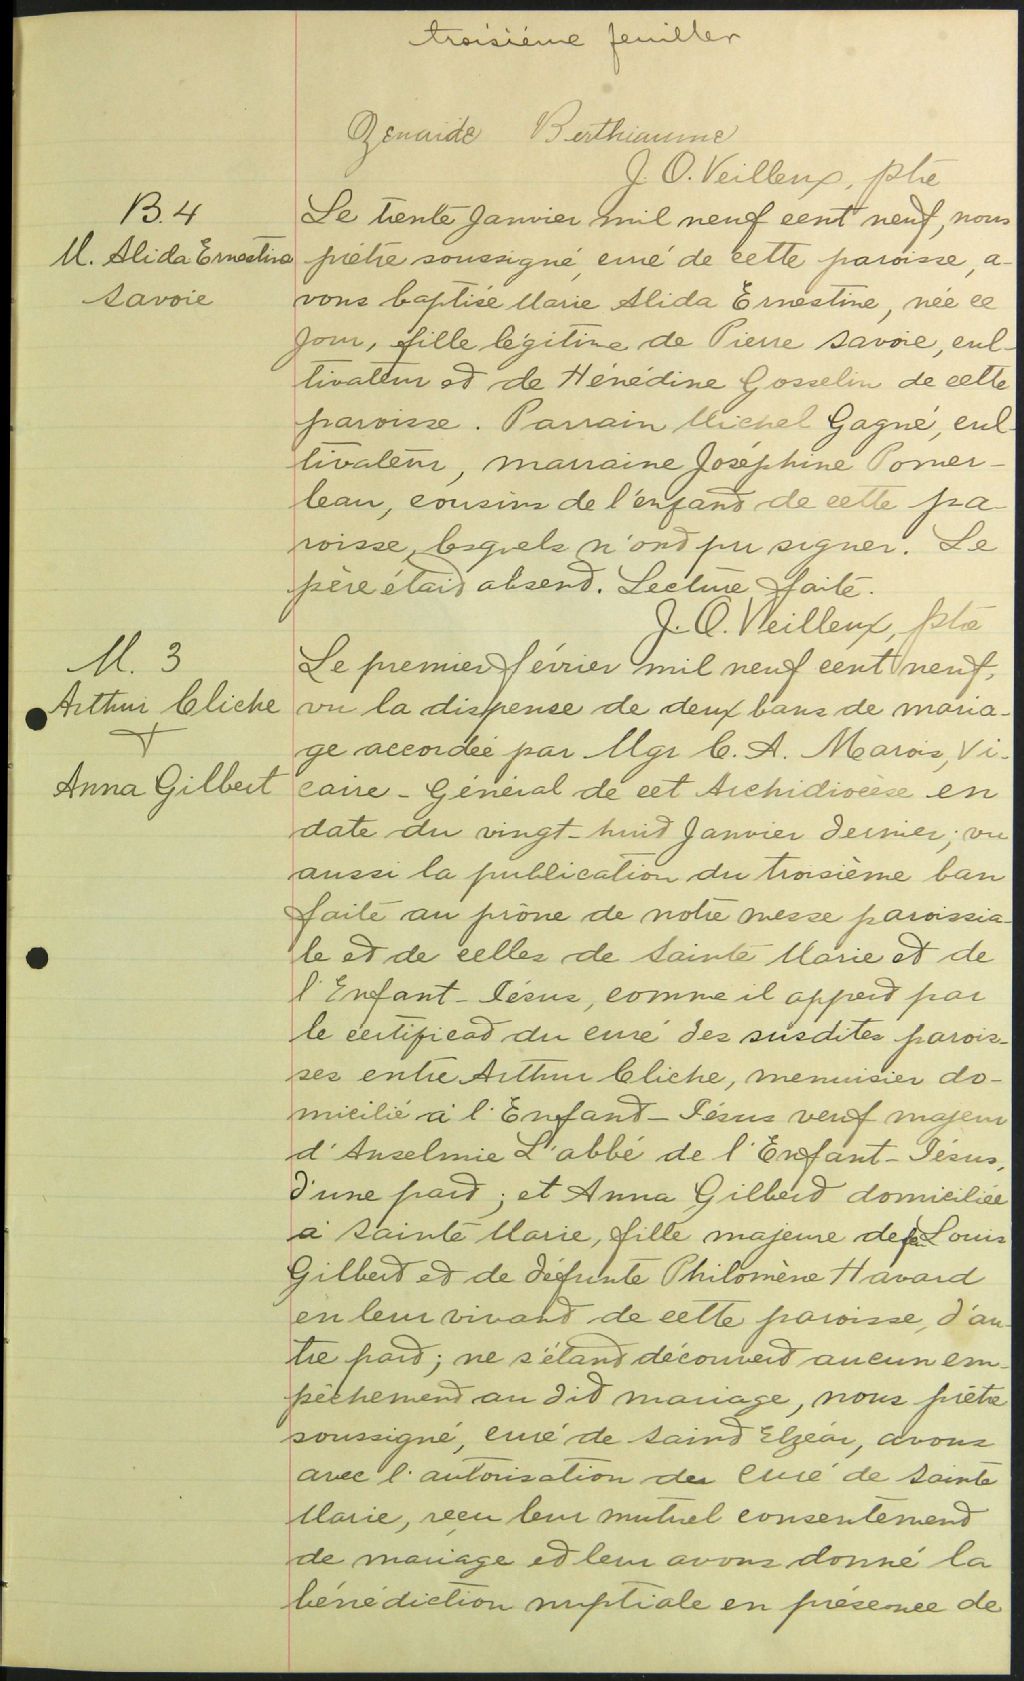 troisième feuillet
Zénaide Berthiaume
J. O. Veilleux, ptre
B. 4
M. Alida Ernestine
Savoie
Le trente Janvier mil neuf cent neuf, nous
prêtre soussigné, curé de cette paroisse, a-
vons baptisé Marie Alida Ernestine, née ce
jour, fille légitime de Pierre Savoie, cul-
tivateur et de Hénédine Gosselin de cette
paroisse. Parrain Michel Gagné, cul-
tivateur, marraine Joséphine Pomer-
leau, cousins de l'enfant de cette pa-
roisse, lesquels n'ont pu signer. Le
père était absent. Lecture faite.
J. O. Veilleux, ptre
M. 3
Arthur Cliche
+
Anna Gilbert
Le premier février mil neuf cent neuf,
vu la dispense de deux bans de maria-
ge accordée par Mgr C. A. Marois, Vi-
caire-Général de cet Archidiocèse en
date du vingt-huit Janvier dernier; vu
aussi la publication du troisième ban
faite au prône de notre messe paroissia-
le et de celles de Sainte Marie et de
l'Enfant-Jésus, comme il appert par
le certificat du curé des susdites parois-
ses entre Arthur Cliche, menuisier do-
micilié à l'Enfant-Jésus veuf majeur
d'Anselmie L'abbé de l'Enfant-Jésus,
d'une part; et Anna Gilbert domiciliée
à Sainte Marie, fille majeure de feu Louis
Gilbert et de défunte Philomène Havard
en leur vivant de cette paroisse, d'au-
tre part; ne s'étant découvert aucun em-
pêchement au dit mariage, nous prêtre
soussigné, curé de Saint Elzéar, avons
avec l'autorisation du Curé de Sainte
Marie, reçu leur mutuel consentement
de mariage et leur avons donné la
bénédiction nuptiale en présence de